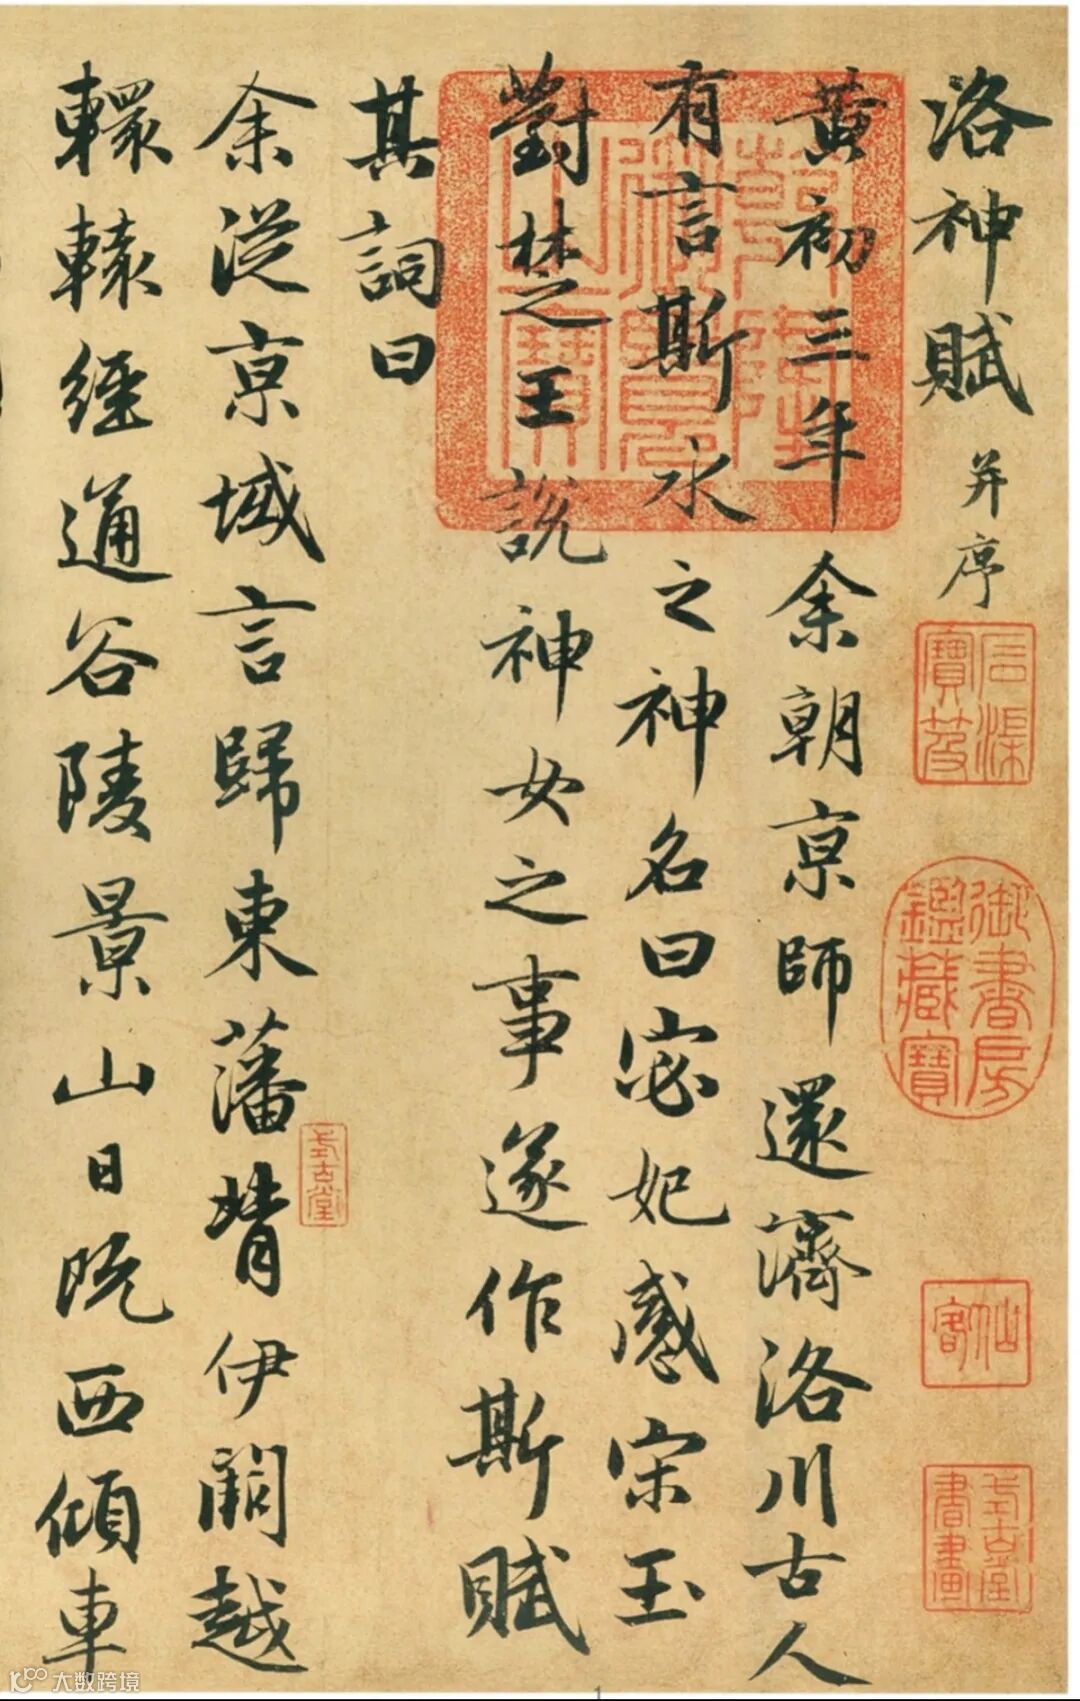 洛神賦并序
黄初三年余朝京師還濟洛川古人
有言斯水之神名曰宓妃感宋玉
對楚之王說神女之事遂作斯賦
其詞曰
余從京域言歸東藩背伊闕越
轘轅經通谷陵景山日既西傾車
乾隆御覽之寶
石渠寶笈
御書房鑑藏寶
仙客
式古堂書畫
式古堂
大数跨境
1